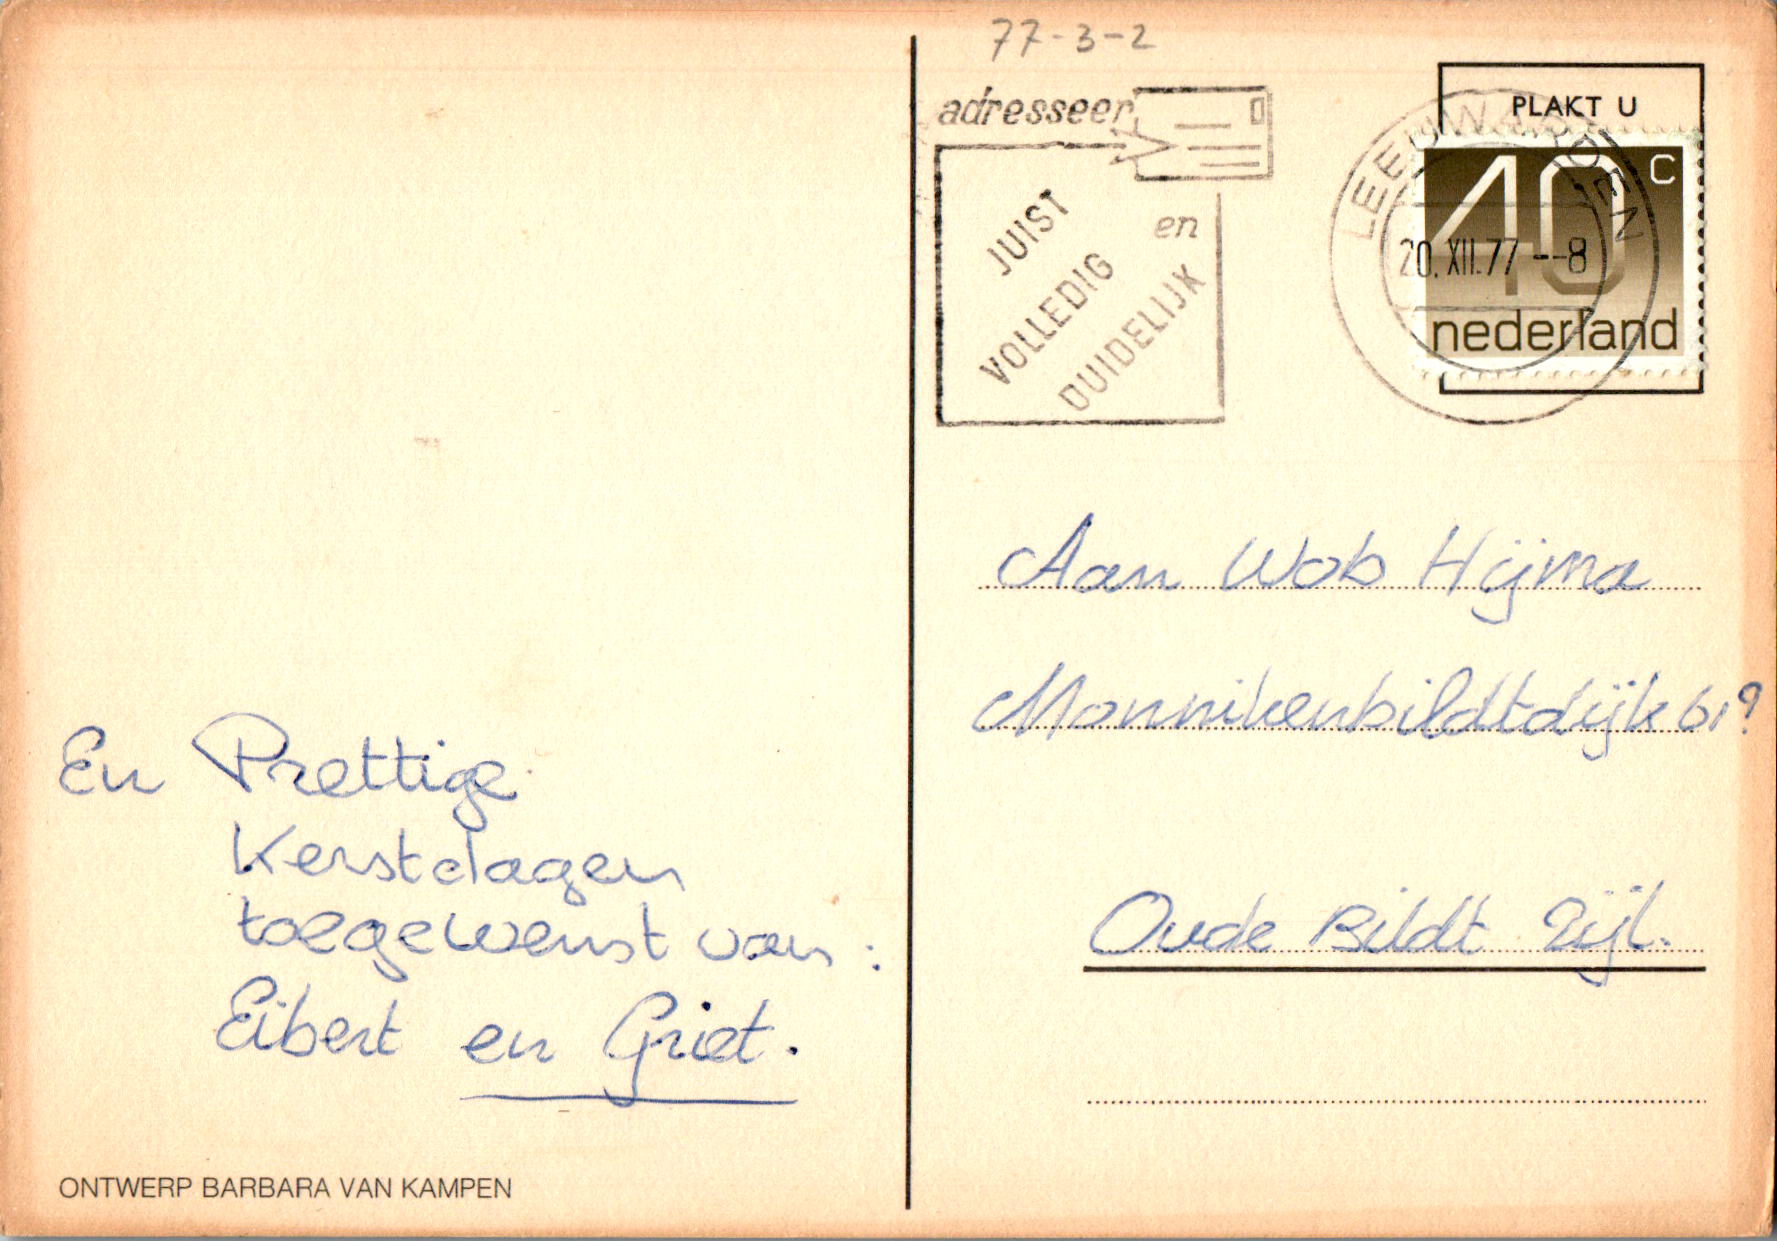 77-3-2
adresseer
JUIST
VOLLEDIG
en
DUIDELIJK
PLAKT U
LEEUWARDEN
20.XII.77--8
40 c
nederland
Aan Wob Hijma
Monnikenbildtdijk 61?
Oude Bildt Zijl.
En Prettige
Kerstdagen
toegewenst van:
Eibert en Griet.
ONTWERP BARBARA VAN KAMPEN